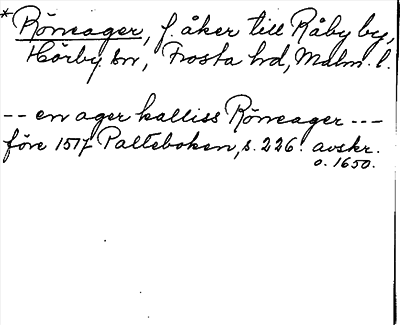 * Röneager, f. åker till Råby by,
Hörby sn, Frosta hd, Malm. l.
-- en ager kalliss Röneager ---
före 1517 Palteboken, s. 226. avskr.
o. 1650.